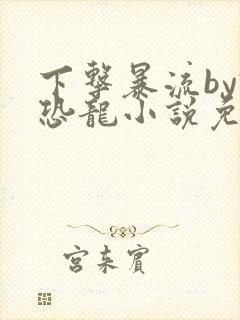 下擊暴流by
恐龍小說免
宮来賓